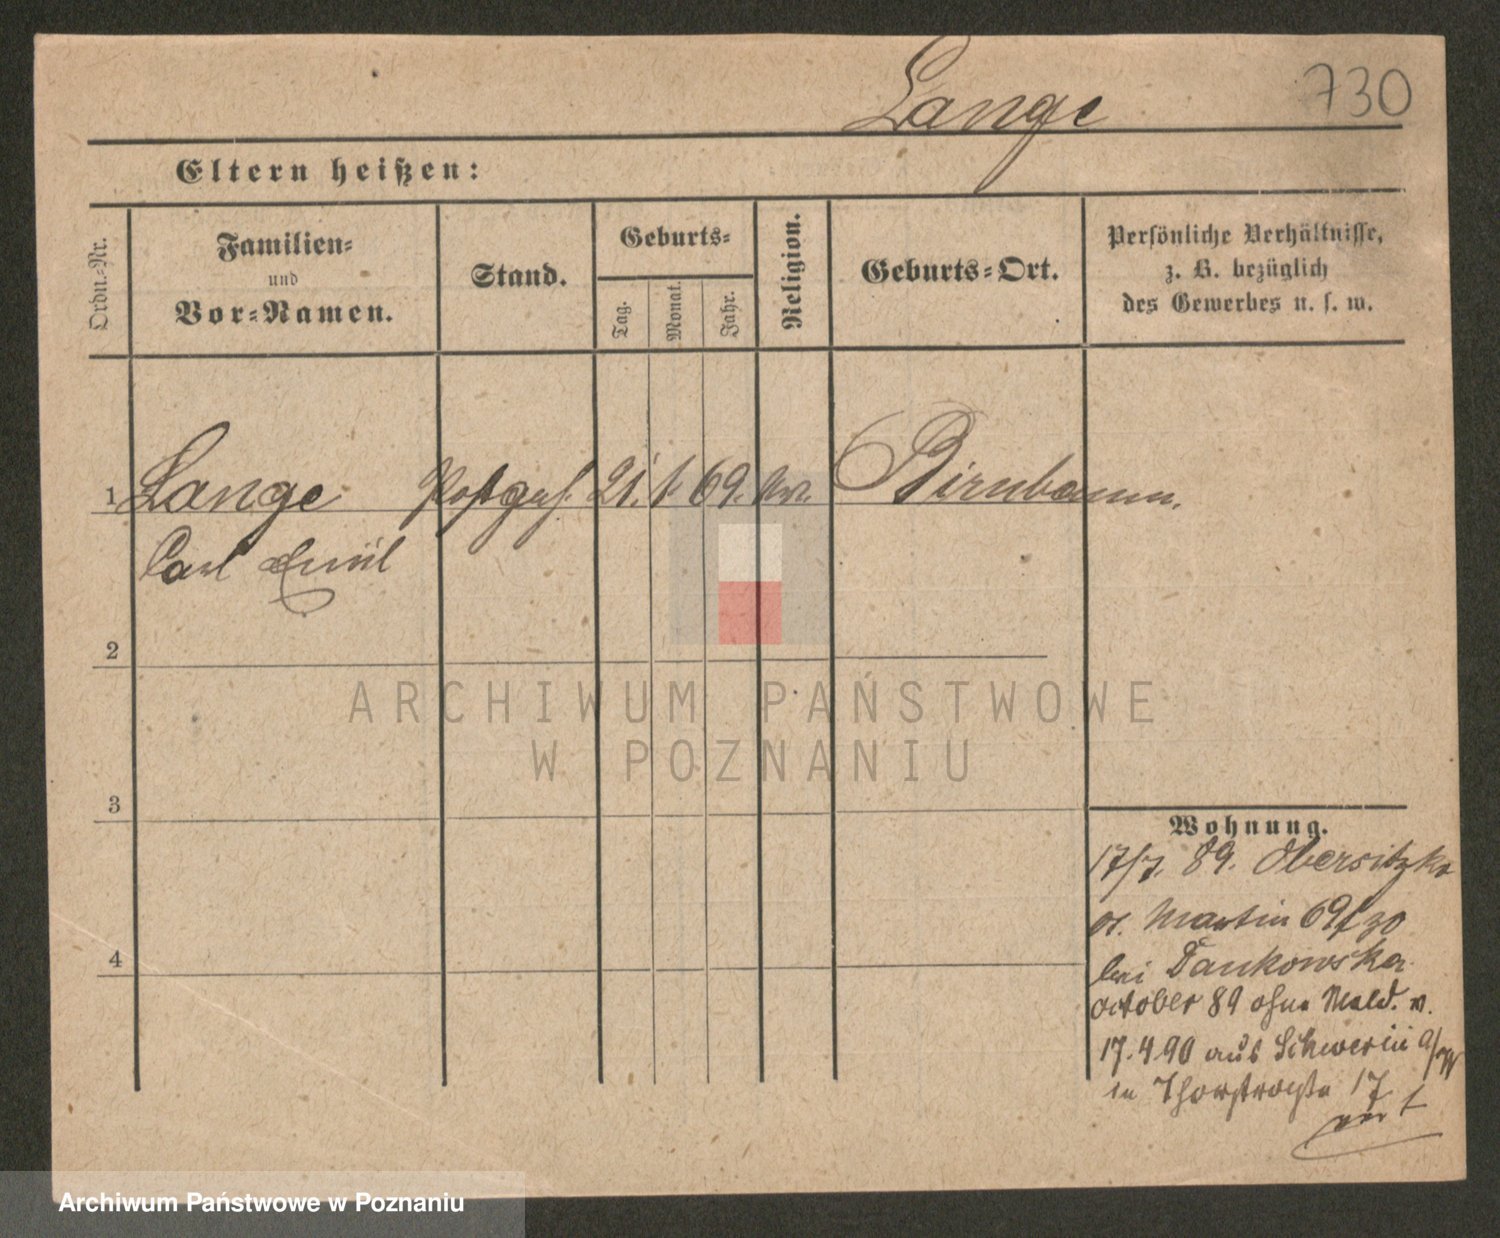 Lange
730
Eltern heißen:
Ordn.-Nr.
Familien-
und
Vor-Namen.
Stand.
Geburts-
Tag.
Monat.
Jahr.
Religion.
Geburts-Ort.
Persönliche Verhältnisse,
z. B. bezüglich
des Gewerbes u. s. w.
1 Lange Postgeh. 21. 1. 69. Birnbaum.
Carl Emil
2
3
4
Wohnung.
17/7. 89. Obersitzko
Martin 69
bei Dankowska
october 89 ohne Meld. v.
17.4.90 aus Schwerin a/W
in Thorstraße 17
ARCHIWUM PAŃSTWOWE
W POZNANIU
Archiwum Państwowe w Poznaniu